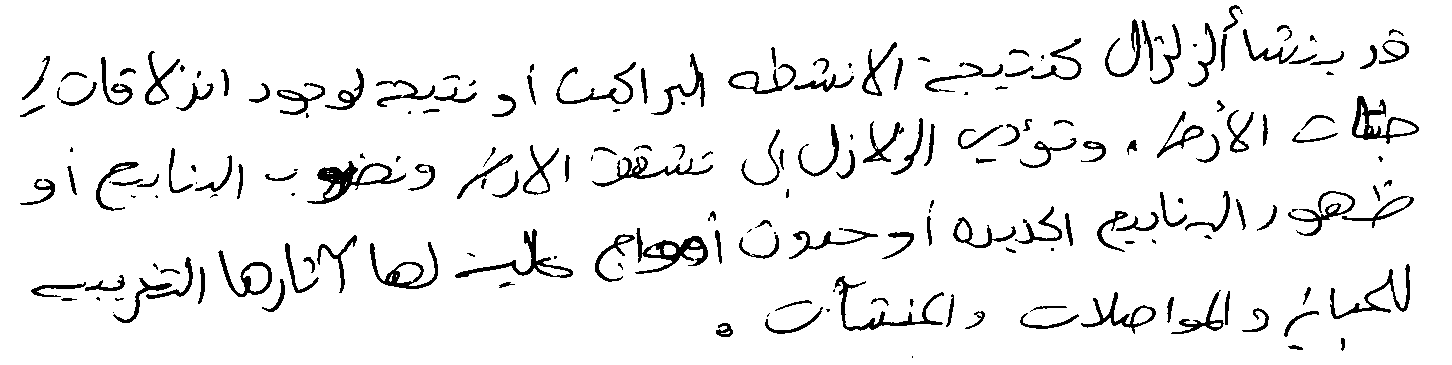 قد ينشأ الزلزال كنتيجة الانشطه البراكين أو نتيجة لوجود انزلاقات في
طبقات الأرض . وتؤدي الزلازل إلى تشقق الارض ونضوب الينابيع أو
ظهور الينابيع الجديده أو حدوث أمواج عالية لها آثارها التخريبيه
للمباني والمواصلات والمنشآت .